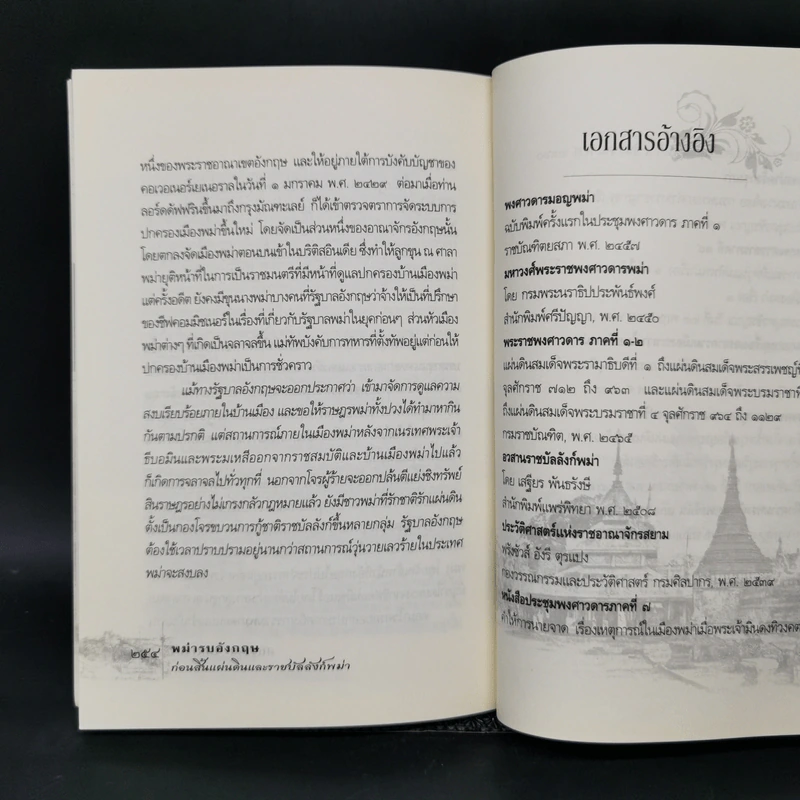 หนึ่งของพระราชอาณาเขตอังกฤษ และให้อยู่ภายใต้การบังคับบัญชาของ
คอเวอเนอร์เยเนอราลในวันที่ ๑ มกราคม พ.ศ. ๒๔๒๙ ต่อมาเมื่อท่าน
ลอร์ดดัฟฟรินขึ้นมาถึงกรุงมัณฑะเลย์ ก็ได้เข้าตรวจตราการจัดระบบการ
ปกครองเมืองพม่าขึ้นใหม่ โดยจัดเป็นส่วนหนึ่งของอาณาจักรอังกฤษนั้น
โดยตกลงจัดเมืองพม่าตอนบนเข้าในบริติสอินเดีย ซึ่งทำให้ลูกขุน ณ ศาลา
พม่ายุติหน้าที่ในการเป็นราชมนตรีที่มีหน้าที่ดูแลปกครองบ้านเมืองพม่า
แต่ครั้งอดีต ยังคงมีขุนนางพม่าบางคนที่รัฐบาลอังกฤษว่าจ้างให้เป็นที่ปรึกษา
ของชีฟคอมมิชเนอร์ในเรื่องที่เกี่ยวกับรัฐบาลพม่าในยุคก่อนๆ ส่วนหัวเมือง
พม่าต่างๆ ที่เกิดเป็นจลาจลขึ้น แม่ทัพบังคับการทหารที่ตั้งทัพอยู่แต่ก่อนให้
ปกครองบ้านเมืองพม่าเป็นการชั่วคราว
แม้ทางรัฐบาลอังกฤษจะออกประกาศว่า เข้ามาจัดการดูแลความ
สงบเรียบร้อยภายในบ้านเมือง และขอให้ราษฎรพม่าทั้งปวงได้ทำมาหากิน
กันตามปรกติ แต่สถานการณ์ภายในเมืองพม่าหลังจากเนรเทศพระเจ้า
ธีบอมินและพระมเหสีออกจากราชสมบัติและบ้านเมืองพม่าไปแล้ว
ก็เกิดการจลาจลไปทั่วทุกที่ นอกจากโจรผู้ร้ายจะออกปล้นตีแย่งชิงทรัพย์
สินราษฎรอย่างไม่เกรงกลัวกฎหมายแล้ว ยังมีชาวพม่าที่รักชาติรักแผ่นดิน
ตั้งเป็นกองโจรขบวนการกู้ชาติราชบัลลังก์ขึ้นหลายกลุ่ม รัฐบาลอังกฤษ
ต้องใช้เวลาปราบปรามอยู่นานกว่าสถานการณ์วุ่นวายเลวร้ายในประเทศ
พม่าจะสงบลง
๒๕๔ พม่ารบอังกฤษ
ก่อนสิ้นแผ่นดินและราชบัลลังก์พม่า
เอกสารอ้างอิง
พงศาวดารมอญพม่า
ฉบับพิมพ์ครั้งแรกในประชุมพงศาวดาร ภาคที่ ๑
ราชบัณฑิตยสภา พ.ศ. ๒๔๕๗
มหาวงศ์พระราชพงศาวดารพม่า
โดย กรมพระนราธิปประพันธ์พงศ์
สำนักพิมพ์ศรีปัญญา, พ.ศ. ๒๔๕๐
พระราชพงศาวดาร ภาคที่ ๑-๒
แผ่นดินสมเด็จพระรามาธิบดีที่ ๑ ถึงแผ่นดินสมเด็จพระสรรเพชญ์ที่
จุลศักราช ๗๑๒ ถึง ๙๖๓ และแผ่นดินสมเด็จพระบรมราชาที่
ถึงแผ่นดินสมเด็จพระบรมราชาที่ ๔ จุลศักราช ๙๖๔ ถึง ๑๑๒๙
กรมราชบัณฑิต, พ.ศ. ๒๔๖๕
อวสานราชบัลลังก์พม่า
โดย เสฐียร พันธรังษี
สำนักพิมพ์แพร่พิทยา พ.ศ. ๒๕๐๘
ประวัติศาสตร์แห่งราชอาณาจักรสยาม
ฟรังซัวส์ อังรี ตุรแปง
กองวรรณกรรมและประวัติศาสตร์ กรมศิลปากร, พ.ศ. ๒๕๓๙
หนังสือประชุมพงศาวดารภาคที่ ๗
คำให้การนายจาด เรื่องเหตุการณ์ในเมืองพม่าเมื่อพระเจ้ามินดงทิวงคต